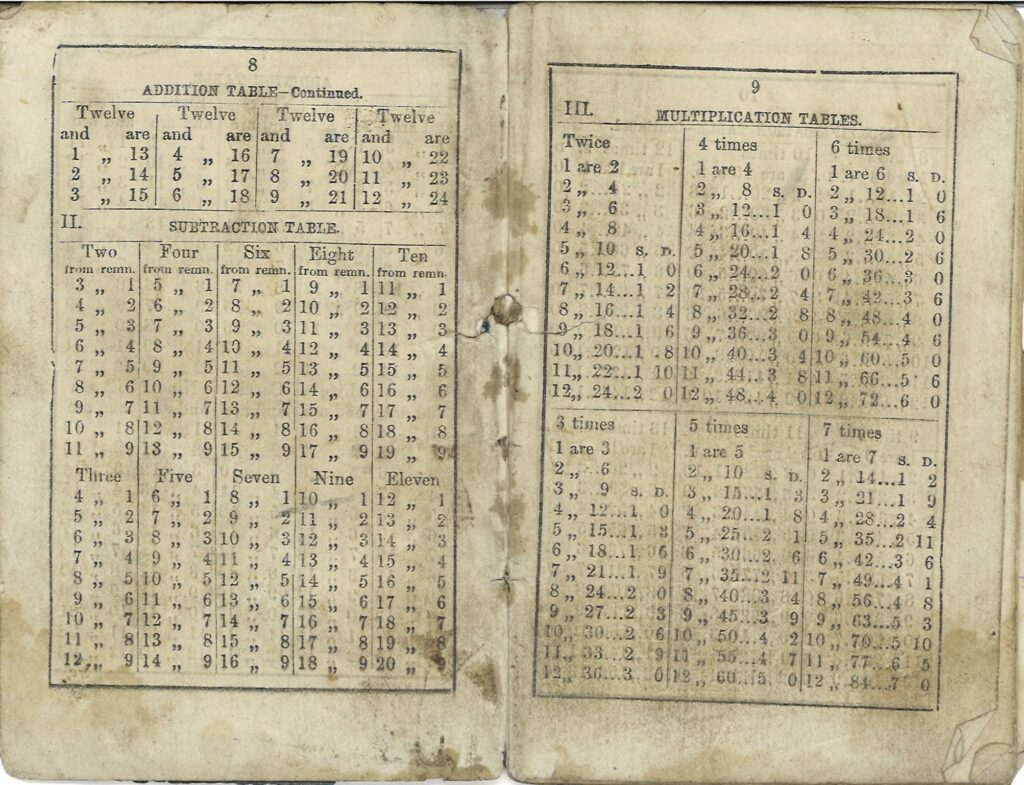 8
ADDITION TABLE—Continued.
Twelve Twelve Twelve Twelve
and are and are and are and are
1 „ 13 4 „ 16 7 „ 19 10 „ 22
2 „ 14 5 „ 17 8 „ 20 11 „ 23
3 „ 15 6 „ 18 9 „ 21 12 „ 24
II. SUBTRACTION TABLE.
Two Four Six Eight Ten
from remn. from remn. from remn. from remn. from remn.
3 „ 1 5 „ 1 7 „ 1 9 „ 1 11 „ 1
4 „ 2 6 „ 2 8 „ 2 10 „ 2 12 „ 2
5 „ 3 7 „ 3 9 „ 3 11 „ 3 13 „ 3
6 „ 4 8 „ 4 10 „ 4 12 „ 4 14 „ 4
7 „ 5 9 „ 5 11 „ 5 13 „ 5 15 „ 5
8 „ 6 10 „ 6 12 „ 6 14 „ 6 16 „ 6
9 „ 7 11 „ 7 13 „ 7 15 „ 7 17 „ 7
10 „ 8 12 „ 8 14 „ 8 16 „ 8 18 „ 8
11 „ 9 13 „ 9 15 „ 9 17 „ 9 19 „ 9
Three Five Seven Nine Eleven
4 „ 1 6 „ 1 8 „ 1 10 „ 1 12 „ 1
5 „ 2 7 „ 2 9 „ 2 11 „ 2 13 „ 2
6 „ 3 8 „ 3 10 „ 3 12 „ 3 14 „ 3
7 „ 4 9 „ 4 11 „ 4 13 „ 4 15 „ 4
8 „ 5 10 „ 5 12 „ 5 14 „ 5 16 „ 5
9 „ 6 11 „ 6 13 „ 6 15 „ 6 17 „ 6
10 „ 7 12 „ 7 14 „ 7 16 „ 7 18 „ 7
11 „ 8 13 „ 8 15 „ 8 17 „ 8 19 „ 8
12 „ 9 14 „ 9 16 „ 9 18 „ 9 20 „ 9
9
III. MULTIPLICATION TABLES.
Twice 4 times 6 times
1 are 2 1 are 4 1 are 6 S. D.
2 „ 4 2 „ 8 S. D. 2 „ 12...1 0
3 „ 6 3 „ 12...1 0 3 „ 18...1 6
4 „ 8 4 „ 16...1 4 4 „ 24...2 0
5 „ 10 S. D. 5 „ 20...1 8 5 „ 30...2 6
6 „ 12...1 0 6 „ 24...2 0 6 „ 36...3 0
7 „ 14...1 2 7 „ 28...2 4 7 „ 42...3 6
8 „ 16...1 4 8 „ 32...2 8 8 „ 48...4 0
9 „ 18...1 6 9 „ 36...3 0 9 „ 54...4 6
10 „ 20...1 8 10 „ 40...3 4 10 „ 60...5 0
11 „ 22...1 10 11 „ 44...3 8 11 „ 66...5 6
12 „ 24...2 0 12 „ 48...4 0 12 „ 72...6 0
3 times 5 times 7 times
1 are 3 1 are 5 1 are 7 S. D.
2 „ 6 2 „ 10 S. D. 2 „ 14...1 2
3 „ 9 S. D. 3 „ 15...1 3 3 „ 21...1 9
4 „ 12...1 0 4 „ 20...1 8 4 „ 28...2 4
5 „ 15...1 3 5 „ 25...2 1 5 „ 35...2 11
6 „ 18...1 6 6 „ 30...2 6 6 „ 42...3 6
7 „ 21...1 9 7 „ 35...2 11 7 „ 49...4 1
8 „ 24...2 0 8 „ 40...3 4 8 „ 56...4 8
9 „ 27...2 3 9 „ 45...3 9 9 „ 63...5 3
10 „ 30...2 6 10 „ 50...4 2 10 „ 70...5 10
11 „ 33...2 9 11 „ 55...4 7 11 „ 77...6 5
12 „ 36...3 0 12 „ 60...5 0 12 „ 84...7 0